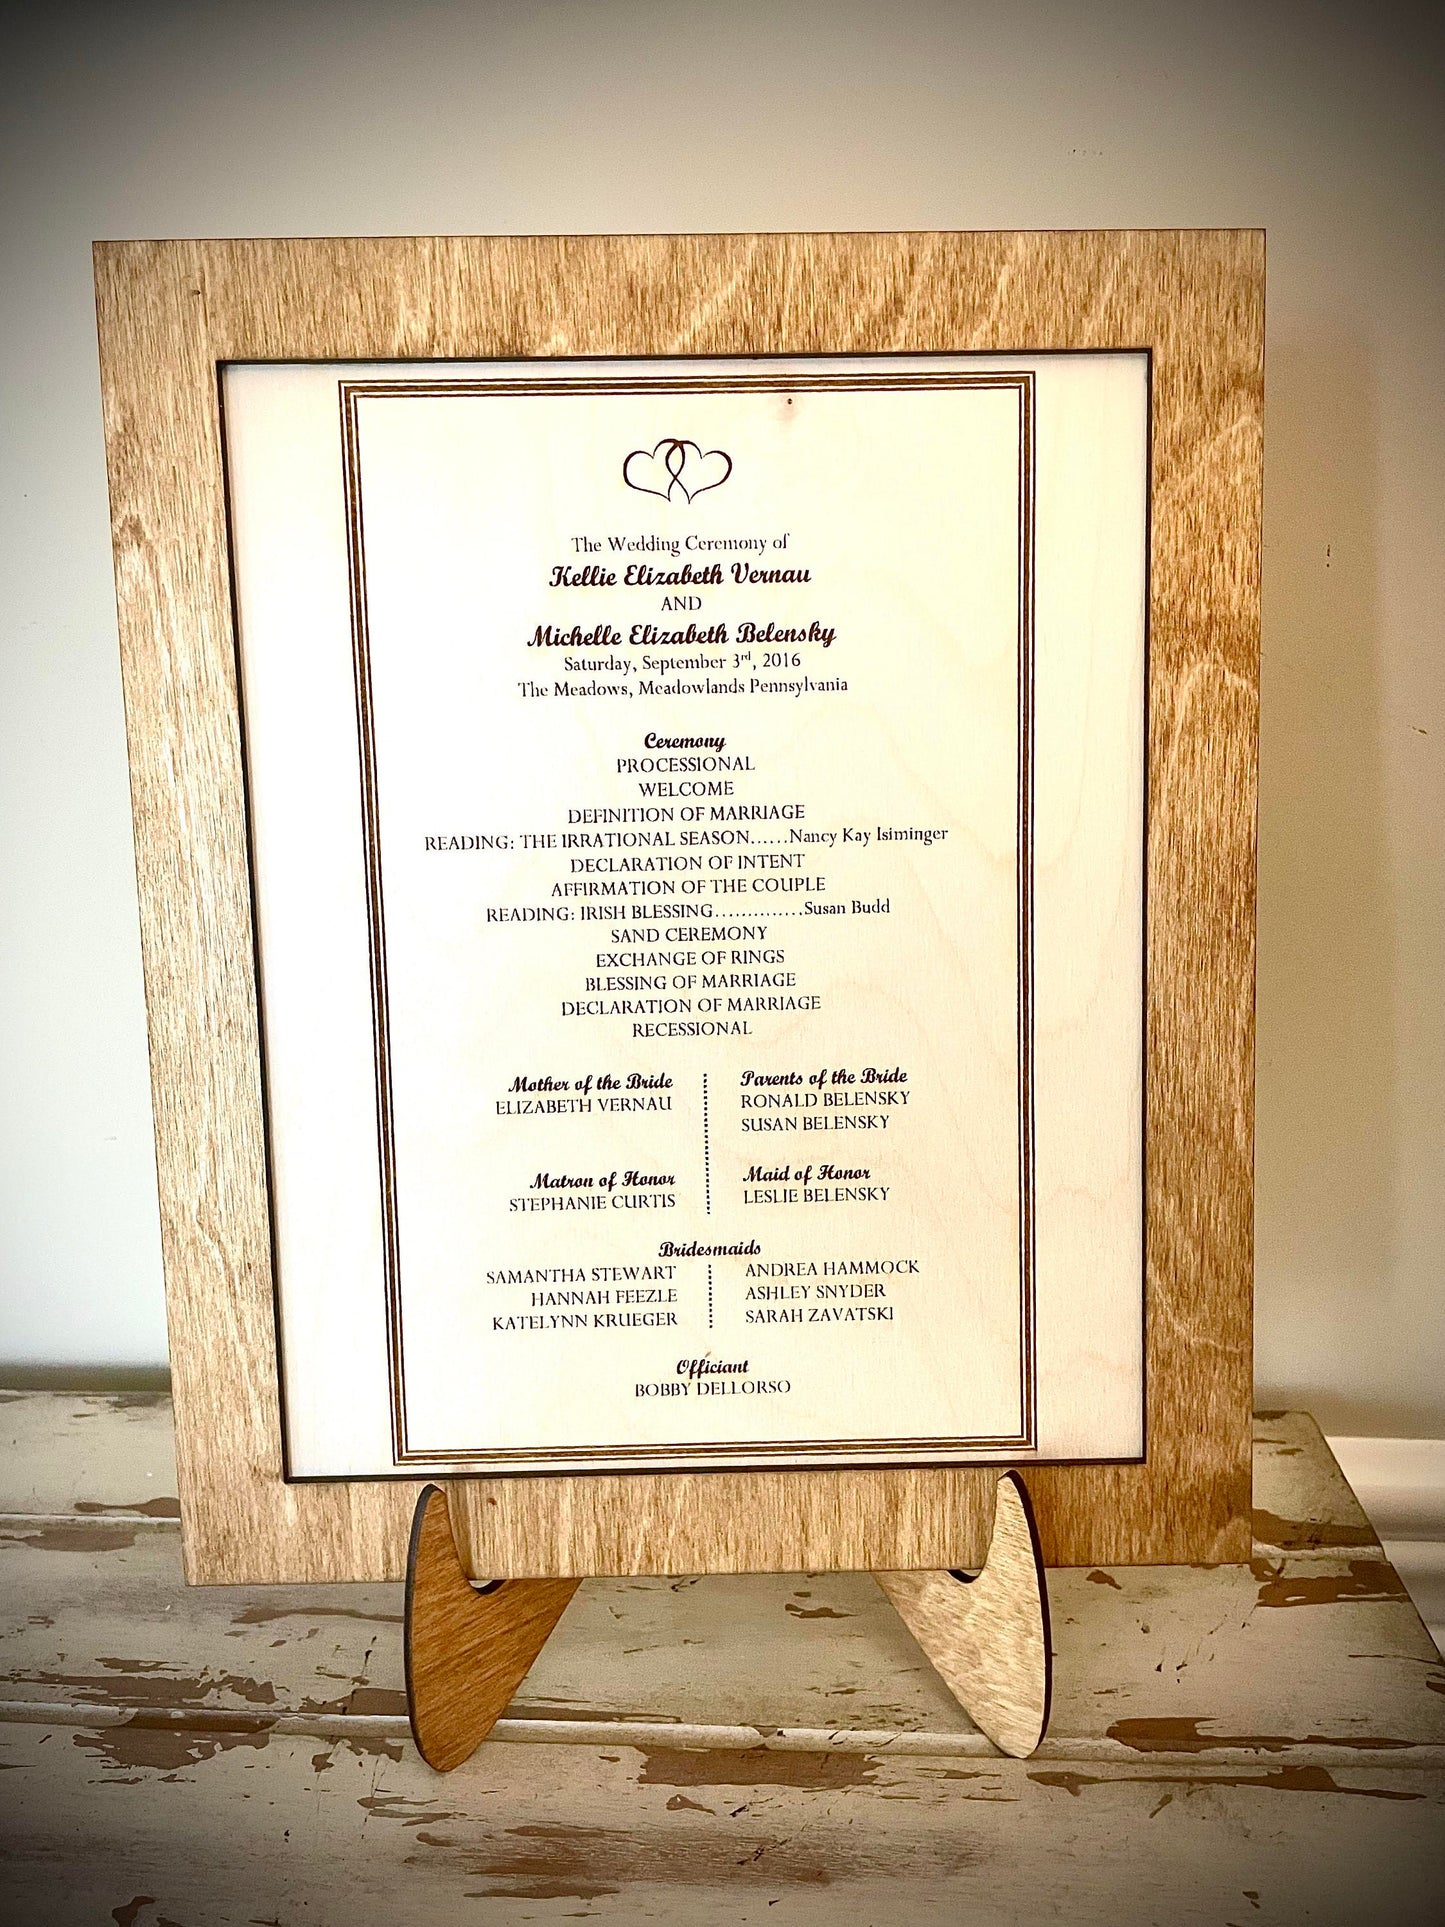 The Wedding Ceremony of
Kellie Elizabeth Vernau
AND
Michelle Elizabeth Belensky
Saturday, September 3rd, 2016
The Meadows, Meadowlands Pennsylvania
Ceremony
PROCESSIONAL
WELCOME
DEFINITION OF MARRIAGE
READING: THE IRRATIONAL SEASON......Nancy Kay Isiminger
DECLARATION OF INTENT
AFFIRMATION OF THE COUPLE
READING: IRISH BLESSING..............Susan Budd
SAND CEREMONY
EXCHANGE OF RINGS
BLESSING OF MARRIAGE
DECLARATION OF MARRIAGE
RECESSIONAL
Mother of the Bride
ELIZABETH VERNAU
Parents of the Bride
RONALD BELENSKY
SUSAN BELENSKY
Matron of Honor
STEPHANIE CURTIS
Maid of Honor
LESLIE BELENSKY
Bridesmaids
SAMANTHA STEWART
HANNAH FEEZLE
KATELYNN KRUEGER
ANDREA HAMMOCK
ASHLEY SNYDER
SARAH ZAVATSKI
Officiant
BOBBY DELLORSO